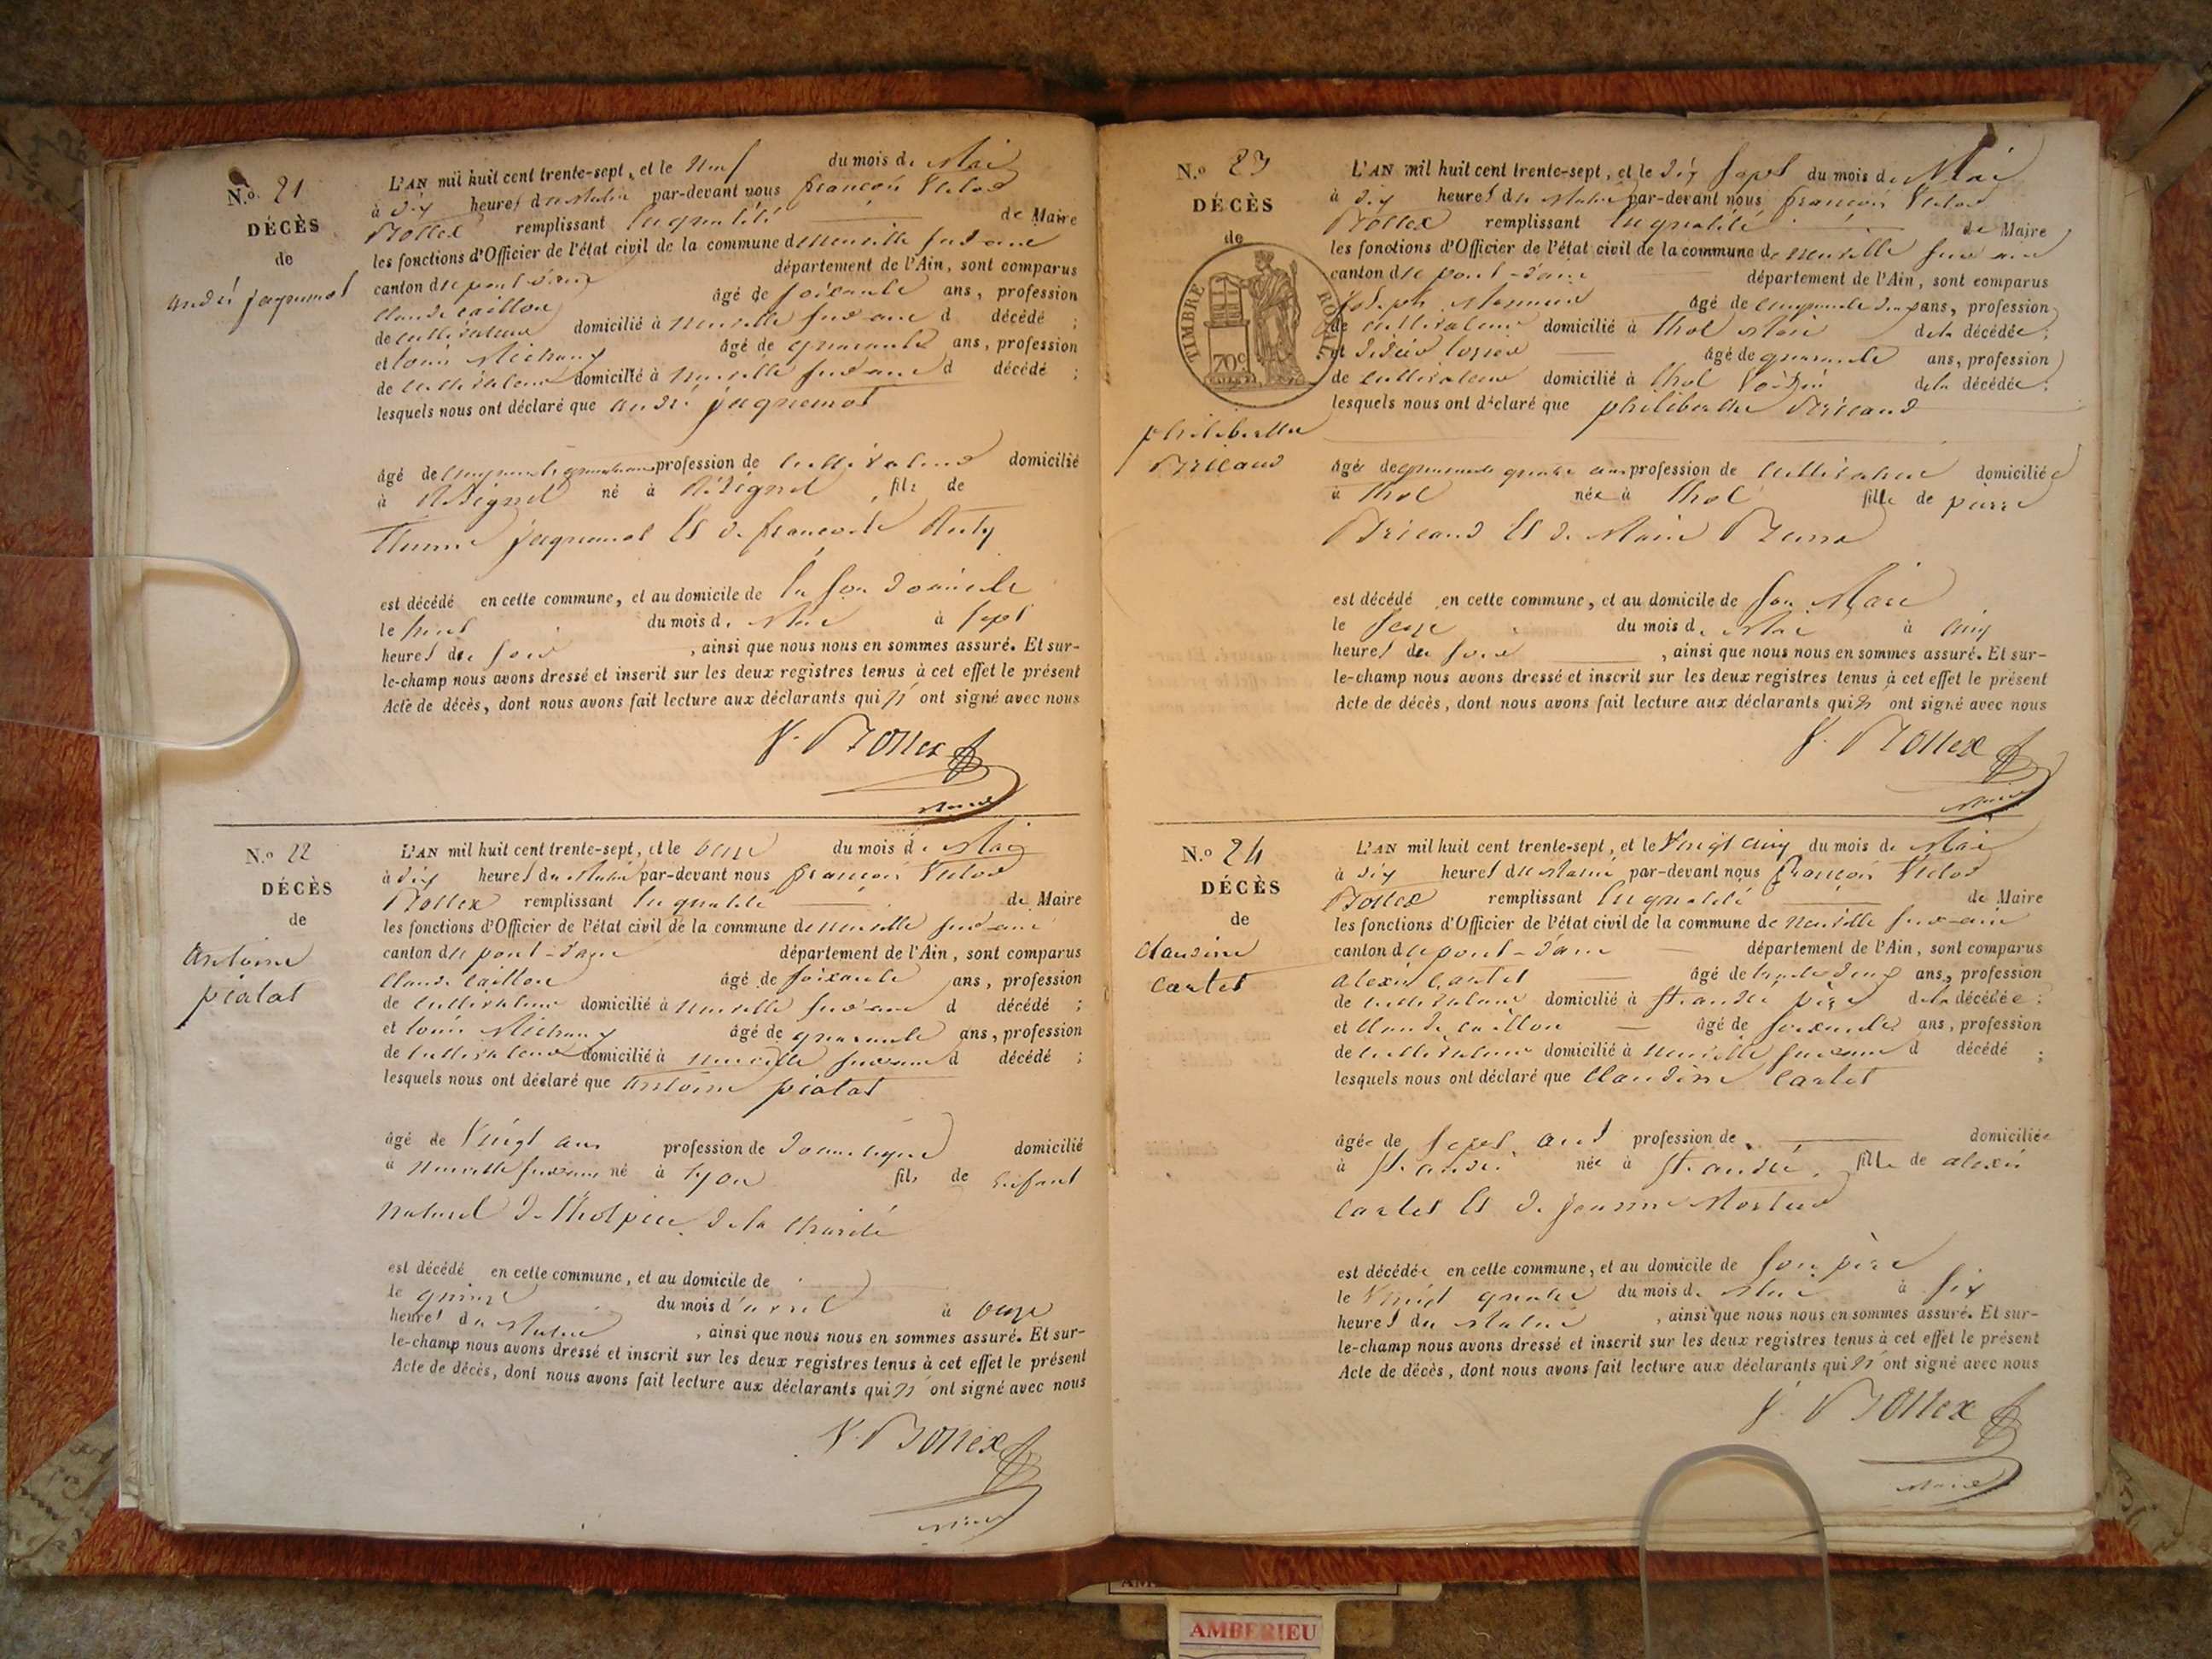 N.o 21
DÉCÈS
de
andré jaquemot
L'AN mil huit cent trente-sept, et le neuf du mois de Mai
à dix heures du Matin par-devant nous françois Victor
Bollex remplissant en qualité de Maire
les fonctions d'Officier de l'état civil de la commune de neuville sur ain
canton de pont d'ain département de l'Ain, sont comparus
Claude Caillon âgé de soixante ans, profession
de cultivateur domicilié à neuville sur ain d décédé ;
et louis Michaux âgé de quarante ans, profession
de cultivateur domicilié à neuville sur ain d décédé ;
lesquels nous ont déclaré que andré jaquemot
âgé de profession de cultivateur domicilié
à Résignel né à Résignel, fils de
jaquemot Et de francoise
est décédé en cette commune, et au domicile de son domicile
le huit du mois de Mai à sept
heures du soir, ainsi que nous nous en sommes assuré. Et sur-
le-champ nous avons dressé et inscrit sur les deux registres tenus à cet effet le présent
Acte de décès, dont nous avons fait lecture aux déclarants qui n'ont signé avec nous
V. Bollex
Maire
N.o 22
DÉCÈS
de
Antoine
pialat
L'AN mil huit cent trente-sept, et le onze du mois de Mai
à dix heures du Matin par-devant nous françois Victor
Bollex remplissant en qualité de Maire
les fonctions d'Officier de l'état civil de la commune de neuville sur ain
canton de pont-d'ain département de l'Ain, sont comparus
Claude Caillon âgé de soixante ans, profession
de cultivateur domicilié à neuville sur ain d décédé ;
et louis Michaux âgé de quarante ans, profession
de cultivateur domicilié à neuville sur ain d décédé ;
lesquels nous ont déclaré que Antoine pialat
âgé de Vingt ans profession de domestique domicilié
à neuville sur ain né à lyon fils de Enfant
naturel de l'hospice de la Charité
est décédé en cette commune, et au domicile de
le quinze du mois d'avril à onze
heures du Matin, ainsi que nous nous en sommes assuré. Et sur-
le-champ nous avons dressé et inscrit sur les deux registres tenus à cet effet le présent
Acte de décès, dont nous avons fait lecture aux déclarants qui n'ont signé avec nous
V. Bollex
Maire
N.o 23
DÉCÈS
de
TIMBRE ROYAL
70c
philiberthe
Bricaud
L'AN mil huit cent trente-sept, et le dix sept du mois de Mai
à dix heures du Matin par-devant nous françois Victor
Bollex remplissant en qualité de Maire
les fonctions d'Officier de l'état civil de la commune de neuville sur ain
canton de pont-d'ain département de l'Ain, sont comparus
joseph âgé de cinquante deux ans, profession
de cultivateur domicilié à thol Mari de la décédée ;
et didier âgé de quarante ans, profession
de cultivateur domicilié à thol Voisin de la décédée ;
lesquels nous ont déclaré que philiberthe Bricaud
âgée de quarante quatre ans profession de cultivateur domiciliée
à thol née à thol fille de pierre
Bricaud Et de Marie
est décédé en cette commune, et au domicile de son Mari
le seize du mois de Mai à cinq
heures du soir, ainsi que nous nous en sommes assuré. Et sur-
le-champ nous avons dressé et inscrit sur les deux registres tenus à cet effet le présent
Acte de décès, dont nous avons fait lecture aux déclarants qui n'ont signé avec nous
V. Bollex
Maire
N.o 24
DÉCÈS
de
Claudine
Cartet
L'AN mil huit cent trente-sept, et le Vingt cinq du mois de Mai
à dix heures du Matin par-devant nous françois Victor
Bollex remplissant en qualité de Maire
les fonctions d'Officier de l'état civil de la commune de neuville sur-ain
canton de pont-d'ain département de l'Ain, sont comparus
alexis Cartet âgé de trente deux ans, profession
de cultivateur domicilié à St. andré père de la décédée ;
et Claude Caillon âgé de soixante ans, profession
de cultivateur domicilié à neuville sur ain d décédé ;
lesquels nous ont déclaré que Claudine Cartet
âgée de sept ans profession de domiciliée
à St. andré née à St. andré, fille de alexis
Cartet Et de jeanne
est décédée en cette commune, et au domicile de son père
le Vingt quatre du mois de Mai à six
heures du Matin, ainsi que nous nous en sommes assuré. Et sur-
le-champ nous avons dressé et inscrit sur les deux registres tenus à cet effet le présent
Acte de décès, dont nous avons fait lecture aux déclarants qui n'ont signé avec nous
V. Bollex
Maire
AMBERIEU